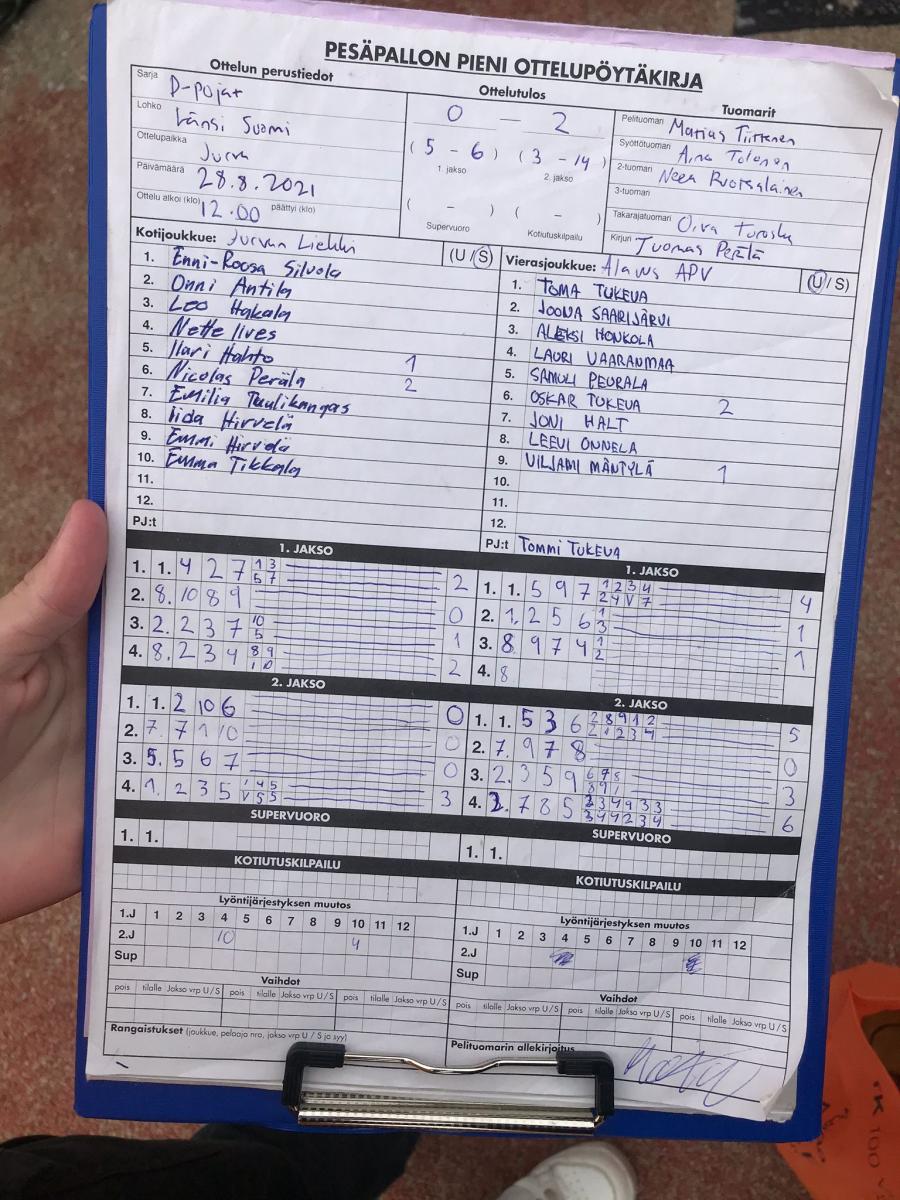 PESÄPALLON PIENI OTTELUPÖYTÄKIRJA
Ottelun perustiedot
Sarja D-pojat
Lohko Länsi Suomi
Ottelupaikka Jurva
Päivämäärä 28.8.2021
Ottelu alkoi (klo) 12.00 päättyi (klo)
Ottelutulos
0 - 2
( 5 - 6 ) ( 3 - 14 )
1. jakso 2. jakso
( - ) ( - )
Supervuoro Kotiutuskilpailu
Tuomarit
Pelituomari
Syöttötuomari Aino
2-tuomari Neea Ruotsalainen
3-tuomari
Takarajatuomari Oiva
Kirjuri Tuomas Perälä
Kotijoukkue: Jurvan Liekki (U / S)
1. Enni-Roosa Silvola
2. Onni Antila
3. Leo Hakala
4. Nette Ilves
5. Ilari Hahto 1
6. Nicolas Perälä 2
7. Emilia Tuulikangas
8. Iida Hirvelä
9. Emmi Hirvelä
10. Emma Tikkala
11.
12.
PJ:t
Vierasjoukkue: Alavus APV (U / S)
1. TOMA TUKEVA
2. JOONA SAARIJÄRVI
3. ALEKSI HONKOLA
4. LAURI VAARANMAA
5. SAMULI PEURALA
6. OSKAR TUKEVA 2
7. JONI HALT
8. LEEVI ONNELA
9. VILJAMI MÄNTYLÄ 1
10.
11.
12.
PJ:t TOMMI TUKEVA
1. JAKSO
1. 1. 4 2 7 1 3 2
5 7
2. 8. 10 8 9 0
3. 2. 2 3 7 10 1
5
4. 8. 2 3 4 8 9 2
1 10
1. JAKSO
1. 1. 5 9 7 1 2 3 4 4
2 4 V 7
2. 1. 2 5 6 1 1
3
3. 8 9 7 4 1 1
2
4. 8
2. JAKSO
1. 1. 2 10 6 0
2. 7. 7 1 10 0
3. 5. 5 6 7 0
4. 1. 2 3 5 1 4 5 3
V 5 5
2. JAKSO
1. 1. 5 3 6 2 8 9 1 2 5
2 1 2 3 4
2. 7. 9 7 8 0
3. 2. 3 5 9 6 7 8 3
8 9 1
4. 2. 7 8 5 2 3 4 9 3 3 6
3 4 4 2 3 4
SUPERVUORO
1. 1.
KOTIUTUSKILPAILU
SUPERVUORO
1. 1.
KOTIUTUSKILPAILU
Lyöntijärjestyksen muutos
1.J 1 2 3 4 5 6 7 8 9 10 11 12
2.J 10 4
Sup
Lyöntijärjestyksen muutos
1.J 1 2 3 4 5 6 7 8 9 10 11 12
2.J
Sup
Vaihdot
pois tilalle Jakso vrp U / S pois tilalle Jakso vrp U / S pois tilalle Jakso vrp U / S
Vaihdot
pois tilalle Jakso vrp U / S pois tilalle Jakso vrp U / S pois tilalle Jakso vrp U / S
Rangaistukset (joukkue, pelaaja nro, jakso vrp U / S ja syy)
Pelituomarin allekirjoitus